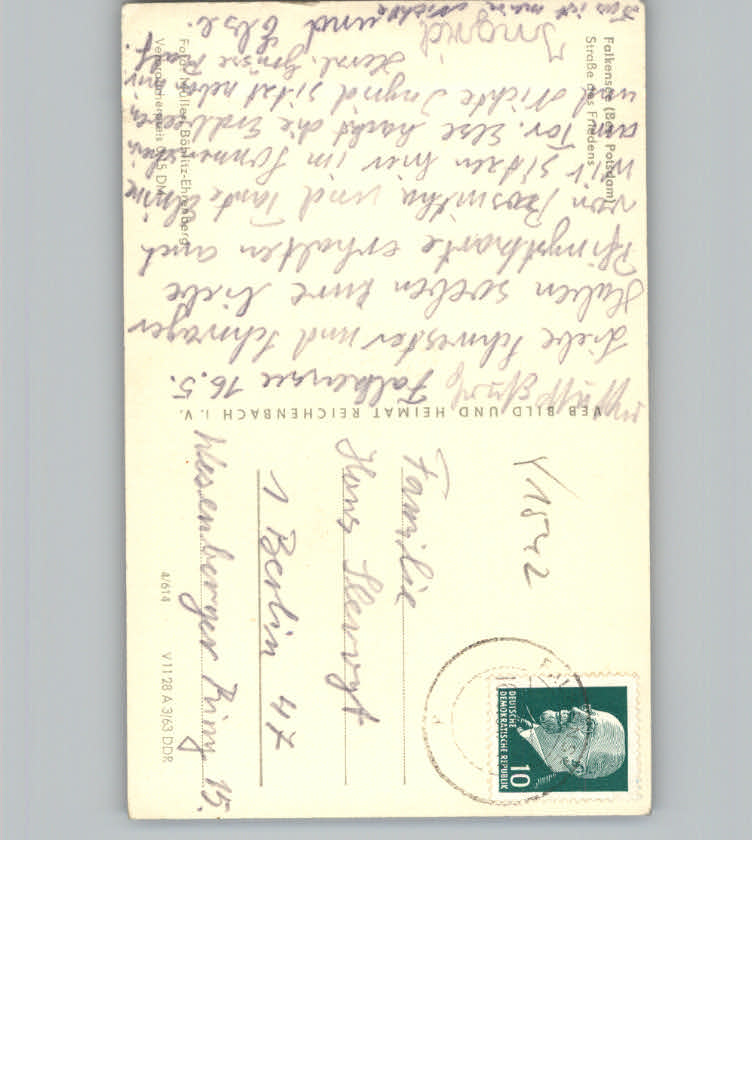 Falkensee (Bez. Potsdam)
Straße des Friedens
Falkensee 16.5.
Liebe Schwester und Schwager
Haben soeben Eure liebe
Pfingstkarte erhalten auch
von Roswitha und Tante
wir sitzen hier im
am Tor. Else hackt die Erdbeeren
und Nichte Ingrid sitzt neben mir
Herzl. Grüsse Ralf
und Else.
Ingrid
Das ist meine
Foto: Müller, Böhlitz-Ehrenberg
Verbraucherpreis 0,15 DM
VEB BILD UND HEIMAT REICHENBACH I. V.
Y1542
Familie
Hans
1 Berlin 47
Wesenberger Ring 15.
4/614 V 11 28 A 3/63 DDR
DEUTSCHE
DEMOKRATISCHE REPUBLIK
10